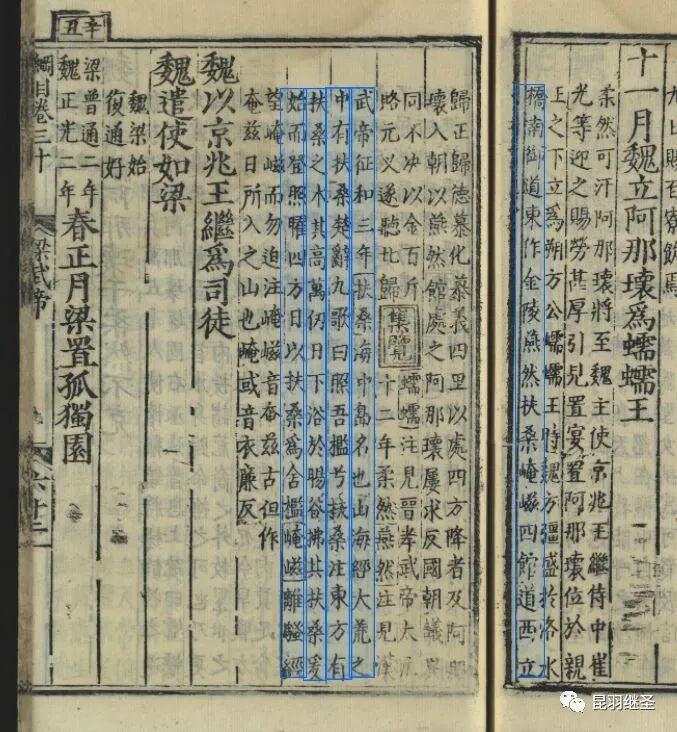 九上賜百寮飲焉
十一月魏立阿那瓌爲蠕蠕王
柔然可汗阿那瓌將至魏主使京兆王繼侍中崔
光等迎之賜勞甚厚引見置宴置阿那瓌位於親
王之下立爲朔方公蠕蠕王時魏方彊盛於洛水
橋南御道東作金陵燕然扶桑崦嵫四館道西立
歸正歸德慕化慕義四里以處四方降者及阿那
瓌入朝以燕然館處之阿那瓌屢求反國朝議異
同不决以金百斤
賂元义遂聽北歸
集覽
蠕蠕注見晉孝武帝太元
十二年柔然燕然注見漢
武帝征和三年扶桑海中島名也山海經大荒之
中有扶桑楚辭九歌曰照吾檻兮扶桑注東方有
扶桑之木其高萬仞日下浴於暘谷拂其扶桑爰
始而登照曜四方日以扶桑爲舍檻崦嵫離騷經
望崦嵫而勿迫注崦嵫音奄兹古但作
奄兹日所入之山也崦或音衣廉反
魏以京兆王繼爲司徒
魏遣使如梁
魏梁始
復通好
辛丑
梁普通二年
魏正光二年
春正月梁置孤獨園
綱目卷三十
梁武帝
六十二
昆羽继圣